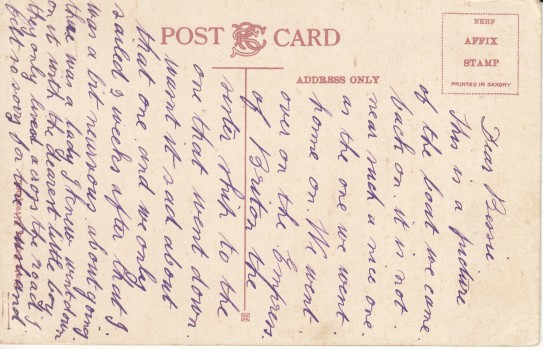 POST CARD
ADDRESS ONLY
NEHF
AFFIX
STAMP
PRINTED IN SAXONY
Dear Bessie.
This is a picture
of the boat we came
back on. it is not
near such a nice one
as the one we went
home on. We went
over on the Empress
of Briton the
sister ship to the
one that went down.
wasnt it sad about
that one and we only
sailed 2 weeks after that I
was a bit nervous about going.
there was a lady I knew went down
on it with the dearest little boy
they only lived across the road I
felt so sorry for